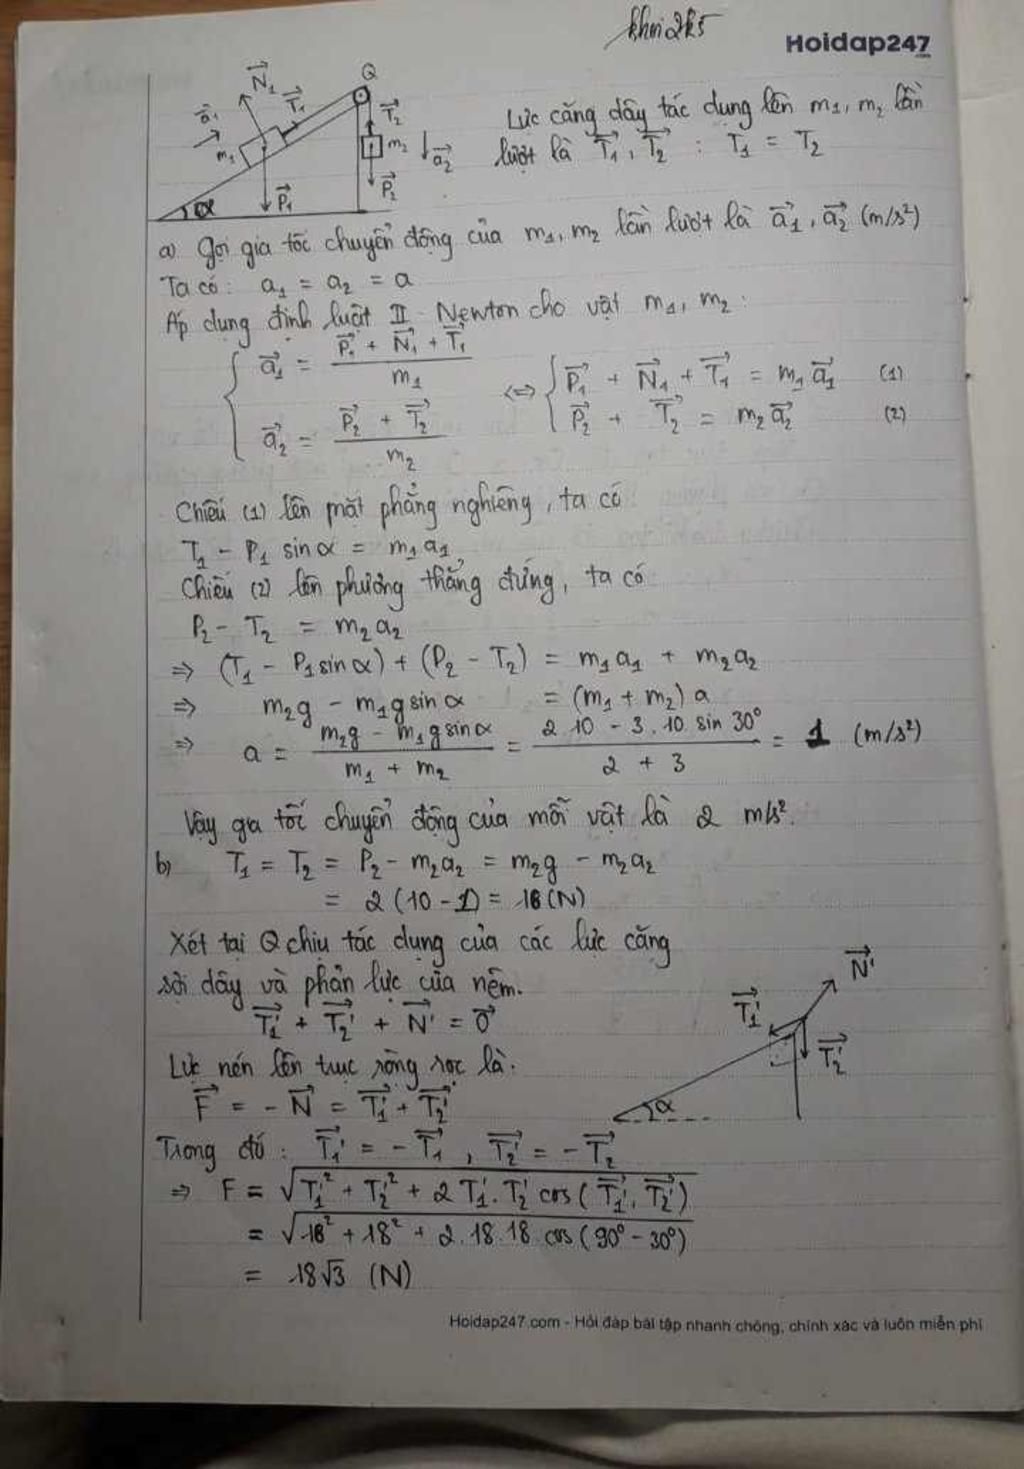 khoi2k5
Hoidap247
N₁
T₁
Q
a₁
m₁
P₁
α
T₂
m₂
a₂
P₂
Lực căng dây tác dụng lên m₁, m₂ lần
lượt là T₁, T₂ : T₁ = T₂
a) Gọi gia tốc chuyển động của m₁, m₂ lần lượt là a₁, a₂ (m/s²)
Ta có: a₁ = a₂ = a
Áp dụng định luật II Newton cho vật m₁, m₂:
{ a₁ = (P₁ + N₁ + T₁) / m₁ ⇔ { P₁ + N₁ + T₁ = m₁a₁ (1)
a₂ = (P₂ + T₂) / m₂ P₂ + T₂ = m₂a₂ (2)
Chiếu (1) lên mặt phẳng nghiêng, ta có
T₁ - P₁ sinα = m₁a₁
Chiếu (2) lên phương thẳng đứng, ta có
P₂ - T₂ = m₂a₂
⇒ (T₁ - P₁sinα) + (P₂ - T₂) = m₁a₁ + m₂a₂
⇒ m₂g - m₁gsinα = (m₁ + m₂)a
⇒ a = (m₂g - m₁gsinα) / (m₁ + m₂) = (2.10 - 3.10.sin30°) / (2 + 3) = 1 (m/s²)
Vậy gia tốc chuyển động của mỗi vật là 2 m/s².
b) T₁ = T₂ = P₂ - m₂a₂ = m₂g - m₂a₂
= 2(10 - 1) = 18(N)
Xét tại Q chịu tác dụng của các lực căng
sợi dây và phản lực của nêm.
T₁' + T₂' + N' = 0
Lực nén lên trục ròng rọc là.
F = -N = T₁' + T₂'
N'
T₁'
T₂'
α
Trong đó: T₁' = -T₁, T₂' = -T₂
⇒ F = √(T₁'² + T₂'² + 2T₁'.T₂'cos(T₁', T₂'))
= √(18² + 18² + 2.18.18.cos(90° - 30°))
= 18√3 (N)
Hoidap247.com - Hỏi đáp bài tập nhanh chóng, chính xác và luôn miễn phí